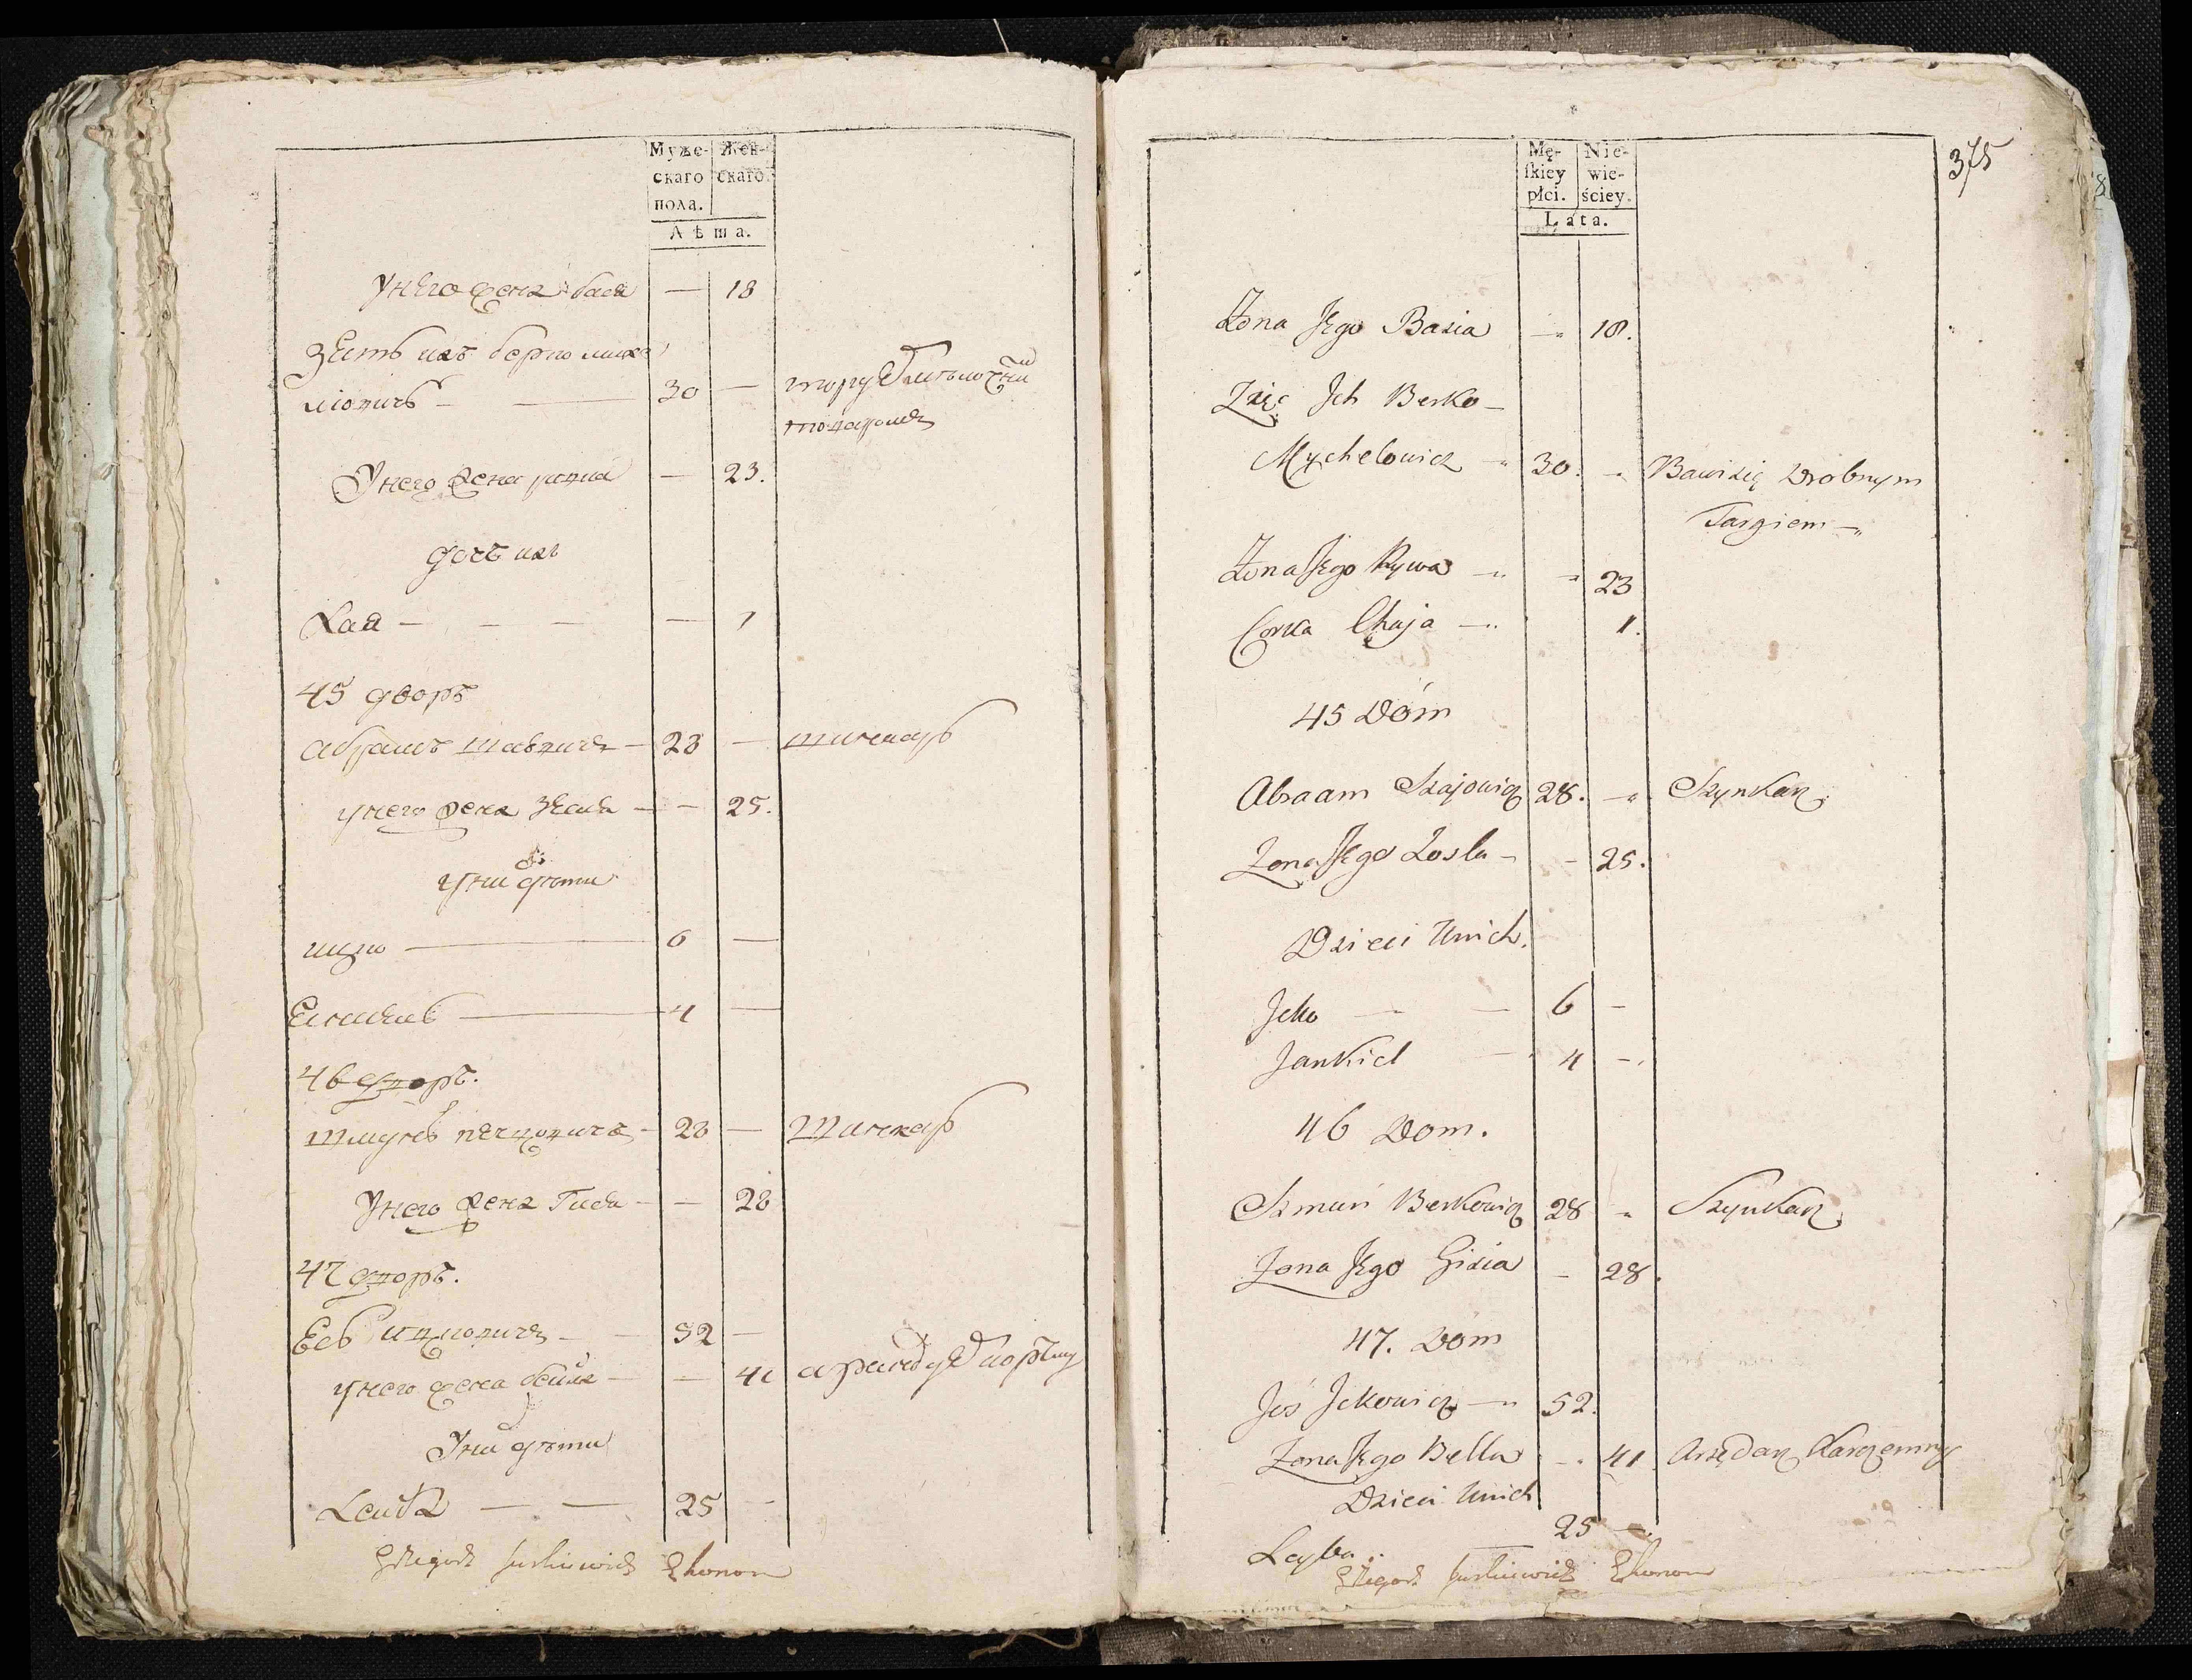 Муже-
скаго
пола.
Жен-
скаго.
Лѣта.
У него жена бася — 18
Зять ихъ берко михе
лiовичъ — 30 — торгуетъ мѣлочни
товаромъ
У него жена рива — 23.
дочь ихъ
Хая — — — — 1
45 дворъ
абрамъ шаевичъ — 28 — шинкаръ
у него жена зѣсля — — 25.
у них дѣти
ицко — 6 —
Енкель — 4 —
46 дворъ.
шмуль берковичъ — 28 — Шинкаръ
У него жена Гися — — 28
47 дворъ.
Есь ицковичъ — — 52 —
у него жена бейля — — 41 арендуетъ корчму
У них дѣти
Лейба — — 25 —
Ekonom
375
Mę-
skiey
płci.
Nie-
wie-
ściey.
Lata.
Żona Jego Basia — 18.
Zięć Ich Berko —
Mychelowicz — 30. — Bawi się Drobnym
Targiem —
Żona Jego Rywa — — 23
Corka Chaja — 1.
45 Dóm
Abraam Szajowicz 28. — Szynkarz
Zona Jego Zosla — — 25.
Dzieci Unich.
Jcko — — 6 —
Jankiel — 4 —
46 Dom.
Szmuń Berkowicz 28 — Szynkarz
Zona Jego Gisia — 28.
47. Dóm
Joś Jckowicz — 52.
Zona Jego Bella — 41. Arędarz Karczemny
Dzieci Unich
Leyba 25 —
Ekonom